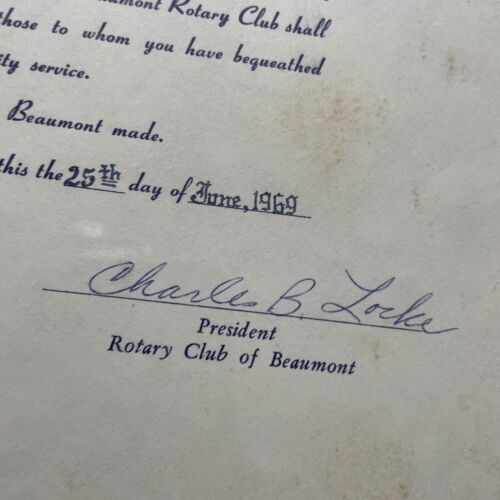 Beaumont Rotary Club shall
those to whom you have bequeathed
ity service.
Beaumont made.
this the 25th day of June, 1969
Charles B. Locke
President
Rotary Club of Beaumont